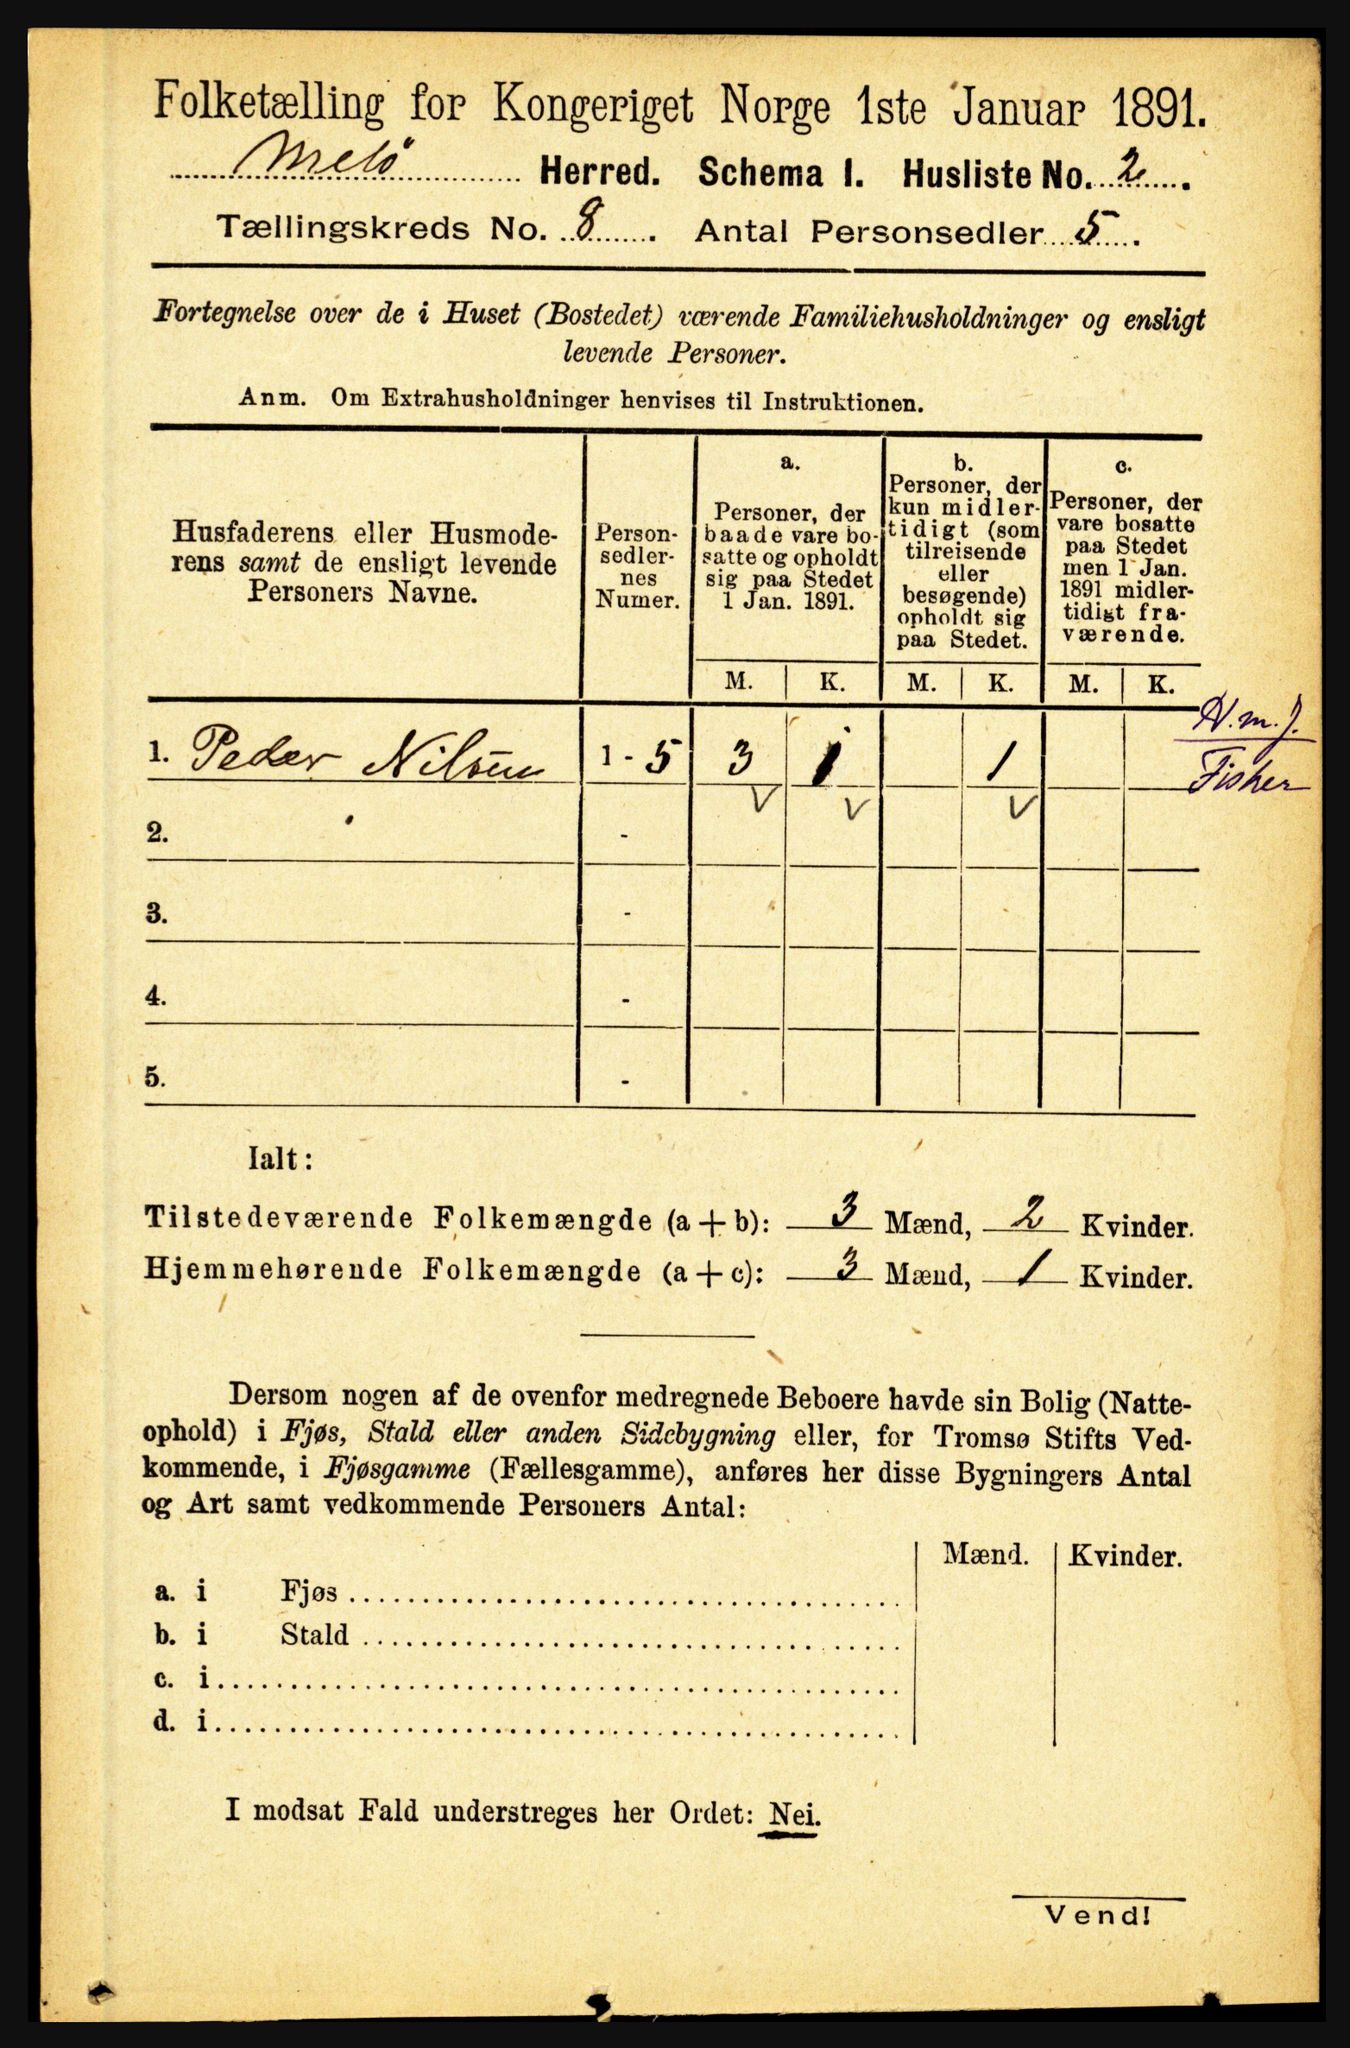 Folketælling for Kongeriget Norge 1ste Januar 1891.
Melö Herred. Schema I. Husliste No. 2.
Tællingskreds No. 8. Antal Personsedler 5.
Fortegnelse over de i Huset (Bostedet) værende Familiehusholdninger og ensligt
levende Personer.
Anm. Om Extrahusholdninger henvises til Instruktionen.
Husfaderens eller Husmode-
rens samt de ensligt levende
Personers Navne.
Person-
sedler-
nes
Numer.
a.
Personer, der
baade vare bo-
satte og opholdt
sig paa Stedet
1 Jan. 1891.
b.
Personer, der
kun midler-
tidigt (som
tilreisende
eller
besøgende)
opholdt sig
paa Stedet.
c.
Personer, der
vare bosatte
paa Stedet
men 1 Jan.
1891 midler-
tidigt fra-
værende.
M. K. M. K. M. K.
1. Peder Nilsen 1 - 5 3 1 1
H.m.J.
Fisker
2. -
3. -
4. -
5. -
Ialt:
Tilstedeværende Folkemængde (a + b): 3 Mænd, 2 Kvinder.
Hjemmehørende Folkemængde (a + c): 3 Mænd, 1 Kvinder.
Dersom nogen af de ovenfor medregnede Beboere havde sin Bolig (Natte-
ophold) i Fjøs, Stald eller anden Sidebygning eller, for Tromsø Stifts Ved-
kommende, i Fjøsgamme (Fællesgamme), anføres her disse Bygningers Antal
og Art samt vedkommende Personers Antal:
Mænd. Kvinder.
a. i Fjøs
b. i Stald
c. i
d. i
I modsat Fald understreges her Ordet: Nei.
Vend!